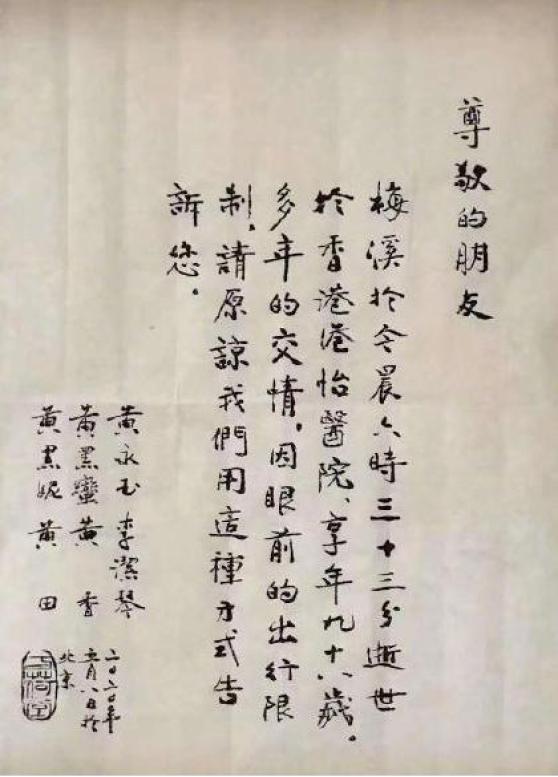 尊敬的朋友
梅溪於今晨六時三十三分逝世
於香港港怡醫院、享年九十八歲。
多年的交情，因眼前的出行限
制，請原諒我們用這種方式告
訴您。
黄永玉 李潔琴
黄黑蠻 黄香
黄黑妮 黄田
二〇二〇年
五月八日於
北京